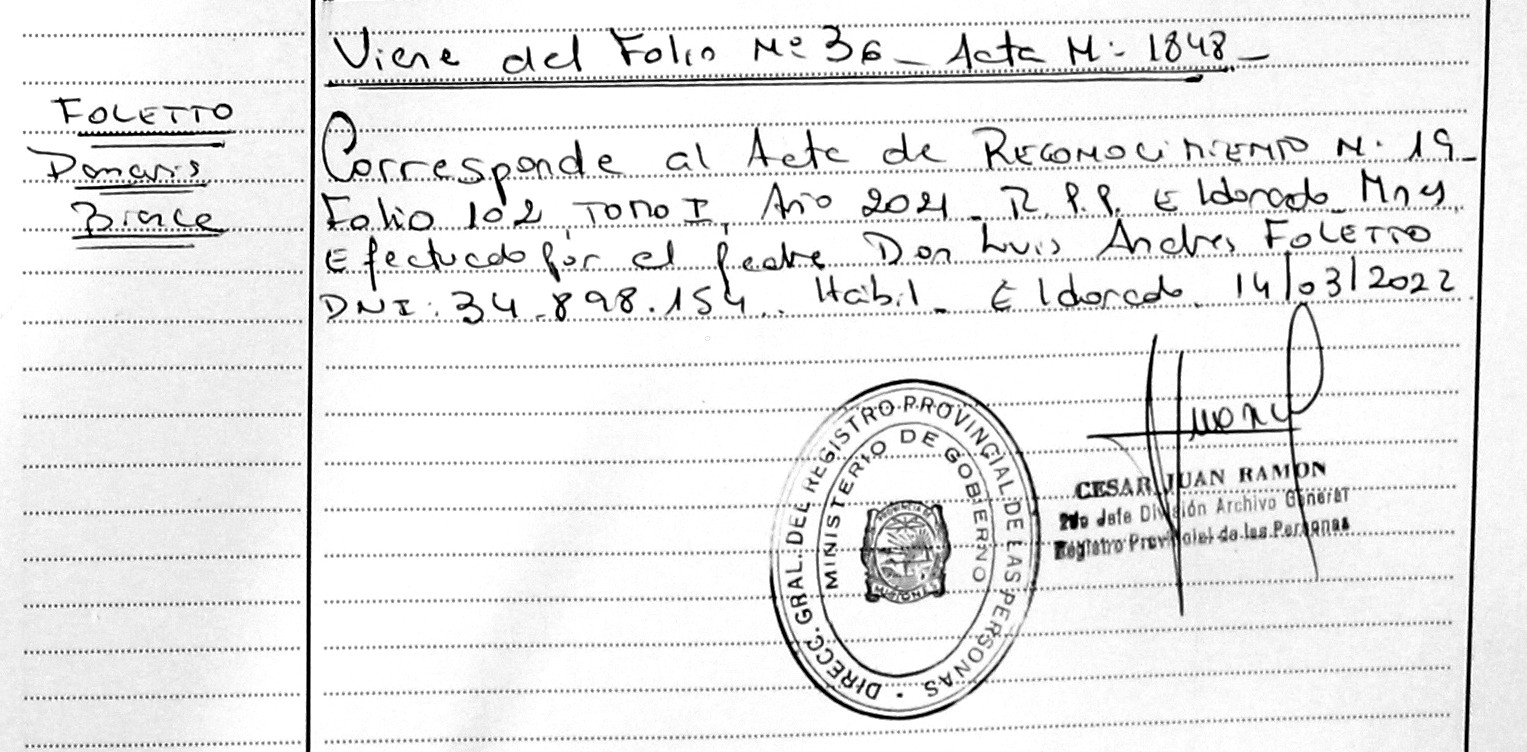 Viene del Folio Nº 36 _ Acta N: 1848 _
FOLETTO
Damaris
Corresponde al Acta de RECONOCIMIENTO N. 19 _
Folio 102, TOMO I, Año 2021 _ R.P.P. Eldorado Mnes.
Efectuado por el Padre Don Luis Andres FOLETTO
DNI: 34.898.154. Habil _ Eldorado 14/03/2022
DIRECC. GRAL. DEL REGISTRO PROVINCIAL DE LAS PERSONAS
MINISTERIO DE GOBIERNO
PROVINCIA DE
MISIONES
CESAR JUAN RAMON
2do Jefe División Archivo General
Registro Provincial de las Personas